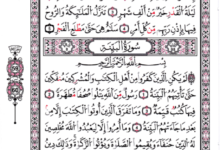 لَيْلَةُ ٱلْقَدْرِ خَيْرٌ مِّنْ أَلْفِ شَهْرٍ ۝ تَنَزَّلُ ٱلْمَلَٰٓئِكَةُ وَٱلرُّوحُ
فِيهَا بِإِذْنِ رَبِّهِم مِّن كُلِّ أَمْرٍ ۝ سَلَٰمٌ هِىَ حَتَّىٰ مَطْلَعِ ٱلْفَجْرِ ۝
سُورَةُ ٱلْبَيِّنَةِ
بِسْمِ ٱللَّهِ ٱلرَّحْمَٰنِ ٱلرَّحِيمِ
لَمْ يَكُنِ ٱلَّذِينَ كَفَرُوا۟ مِنْ أَهْلِ ٱلْكِتَٰبِ وَٱلْمُشْرِكِينَ مُنفَكِّينَ
حَتَّىٰ تَأْتِيَهُمُ ٱلْبَيِّنَةُ ۝ رَسُولٌ مِّنَ ٱللَّهِ يَتْلُوا۟ صُحُفًا مُّطَهَّرَةً ۝
فِيهَا كُتُبٌ قَيِّمَةٌ ۝ وَمَا تَفَرَّقَ ٱلَّذِينَ أُوتُوا۟ ٱلْكِتَٰبَ إِلَّا مِنۢ
بَعْدِ مَا جَآءَتْهُمُ ٱلْبَيِّنَةُ ۝ وَمَآ أُمِرُوٓا۟ إِلَّا لِيَعْبُدُوا۟ ٱللَّهَ مُخْلِصِينَ
لَهُ ٱلدِّينَ حُنَفَآءَ وَيُقِيمُوا۟ ٱلصَّلَوٰةَ وَيُؤْتُوا۟ ٱلزَّكَوٰةَ وَذَٰلِكَ